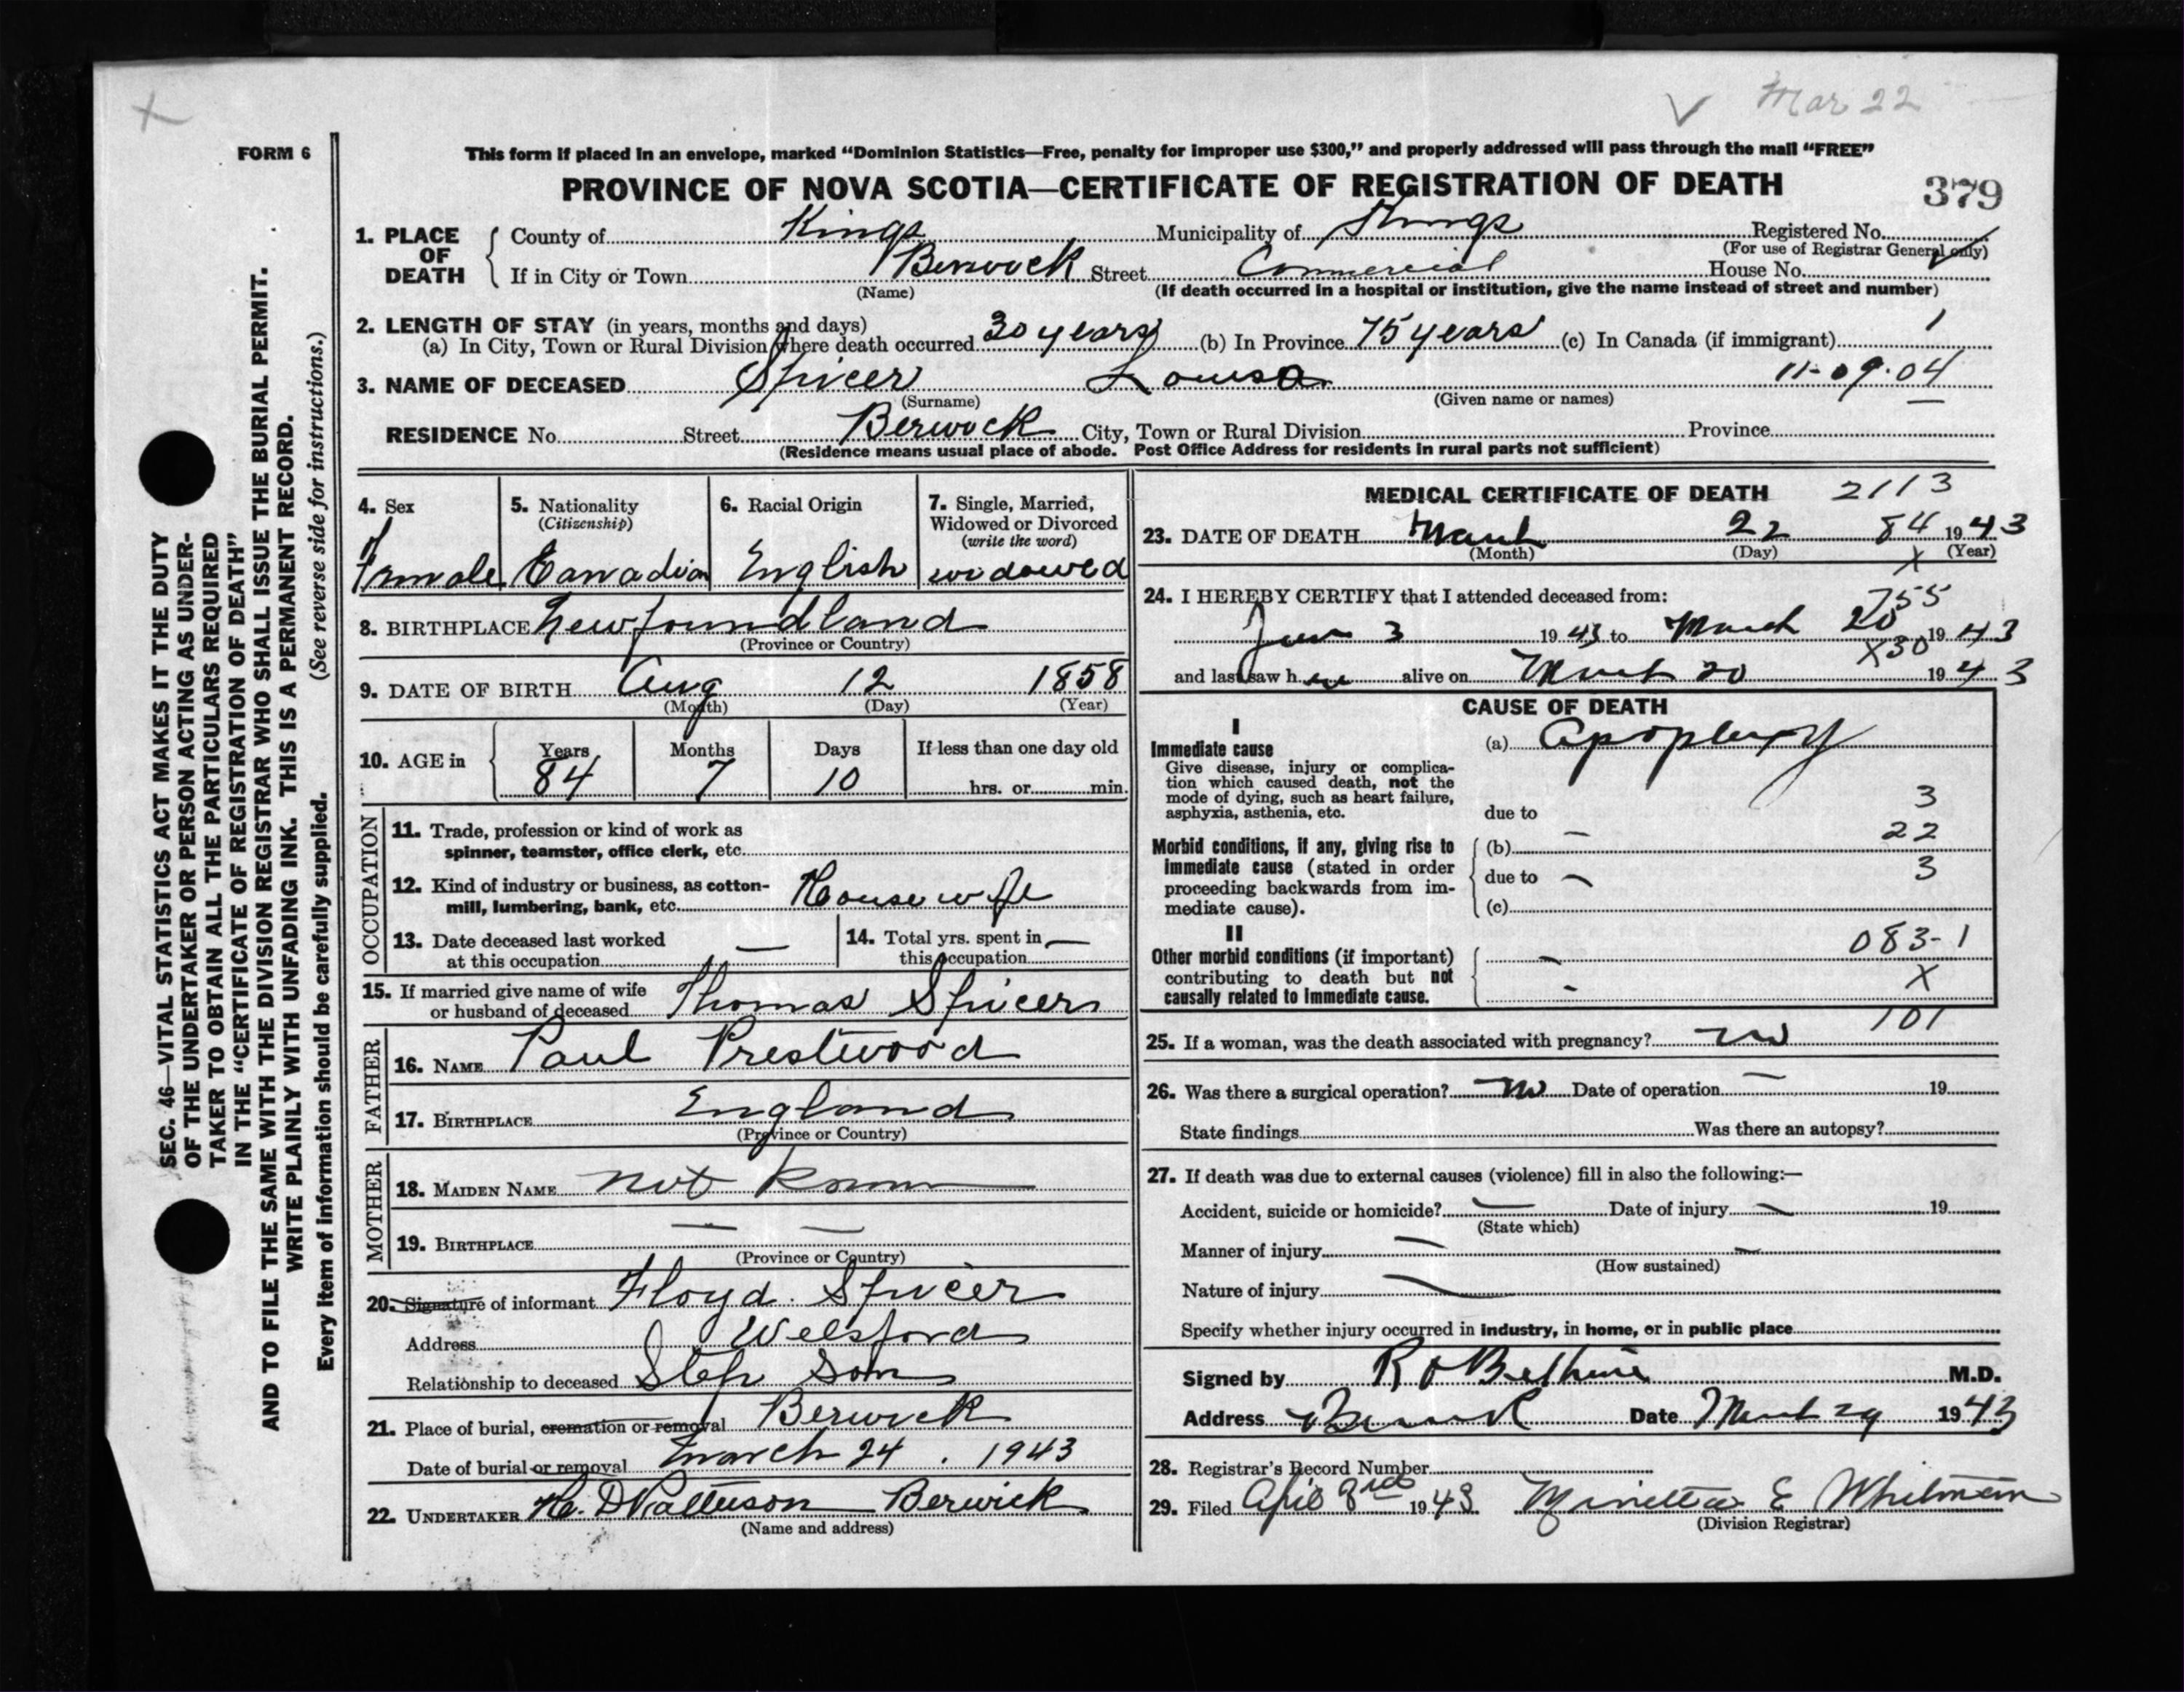 Mar 22
FORM 6
This form if placed in an envelope, marked “Dominion Statistics—Free, penalty for improper use $300,” and properly addressed will pass through the mail “FREE”
PROVINCE OF NOVA SCOTIA—CERTIFICATE OF REGISTRATION OF DEATH
379
1. PLACE OF DEATH
County of Kings Municipality of Kings Registered No.
(For use of Registrar General only)
If in City or Town Berwick Street Commercial House No.
(Name) (If death occurred in a hospital or institution, give the name instead of street and number)
2. LENGTH OF STAY (in years, months and days)
(a) In City, Town or Rural Division where death occurred 30 years (b) In Province 75 years (c) In Canada (if immigrant) 1
3. NAME OF DECEASED Spicer Louisa 11-09-04
(Surname) (Given name or names)
RESIDENCE No. Street Berwick City, Town or Rural Division Province
(Residence means usual place of abode. Post Office Address for residents in rural parts not sufficient)
4. Sex
Female
5. Nationality
(Citizenship)
Canadian
6. Racial Origin
English
7. Single, Married,
Widowed or Divorced
(write the word)
widowed
8. BIRTHPLACE Newfoundland
(Province or Country)
9. DATE OF BIRTH Aug 12 1858
(Month) (Day) (Year)
10. AGE in Years Months Days If less than one day old
84 7 10 hrs. or min.
OCCUPATION
11. Trade, profession or kind of work as
spinner, teamster, office clerk, etc.
12. Kind of industry or business, as cotton-
mill, lumbering, bank, etc. Housewife
13. Date deceased last worked
at this occupation —
14. Total yrs. spent in
this occupation —
15. If married give name of wife
or husband of deceased Thomas Spicer
FATHER
16. NAME Paul Prestwood
17. BIRTHPLACE England
(Province or Country)
MOTHER
18. MAIDEN NAME not known
19. BIRTHPLACE — —
(Province or Country)
20. Signature of informant Floyd Spicer
Address Welsford
Relationship to deceased Step Son
21. Place of burial, cremation or removal Berwick
Date of burial or removal March 24 . 1943
22. UNDERTAKER Berwick
(Name and address)
MEDICAL CERTIFICATE OF DEATH 2113
23. DATE OF DEATH March 22 84 1943
(Month) (Day) X (Year)
24. I HEREBY CERTIFY that I attended deceased from:
755
3 1943 to March 20 1943
X30
and last saw her alive on March 20 1943
CAUSE OF DEATH
I
Immediate cause
Give disease, injury or complica-
tion which caused death, not the
mode of dying, such as heart failure,
asphyxia, asthenia, etc.
(a) Apoplexy
3
due to
Morbid conditions, if any, giving rise to
immediate cause (stated in order
proceeding backwards from im-
mediate cause).
(b) — 22
due to — 3
(c)
II
Other morbid conditions (if important)
contributing to death but not
causally related to immediate cause.
— 083-1
- X
101
25. If a woman, was the death associated with pregnancy? no
26. Was there a surgical operation? no Date of operation — 19
State findings Was there an autopsy?
27. If death was due to external causes (violence) fill in also the following:—
Accident, suicide or homicide? — Date of injury — 19
(State which)
Manner of injury — —
(How sustained)
Nature of injury —
Specify whether injury occurred in industry, in home, or in public place
Signed by Bethune M.D.
Address Berwick Date March 29 1943
28. Registrar's Record Number
29. Filed April 1943 E Whitman
(Division Registrar)
SEC. 46—VITAL STATISTICS ACT MAKES IT THE DUTY
OF THE UNDERTAKER OR PERSON ACTING AS UNDER-
TAKER TO OBTAIN ALL THE PARTICULARS REQUIRED
IN THE “CERTIFICATE OF REGISTRATION OF DEATH”
AND TO FILE THE SAME WITH THE DIVISION REGISTRAR WHO SHALL ISSUE THE BURIAL PERMIT.
WRITE PLAINLY WITH UNFADING INK. THIS IS A PERMANENT RECORD.
Every item of information should be carefully supplied. (See reverse side for instructions.)